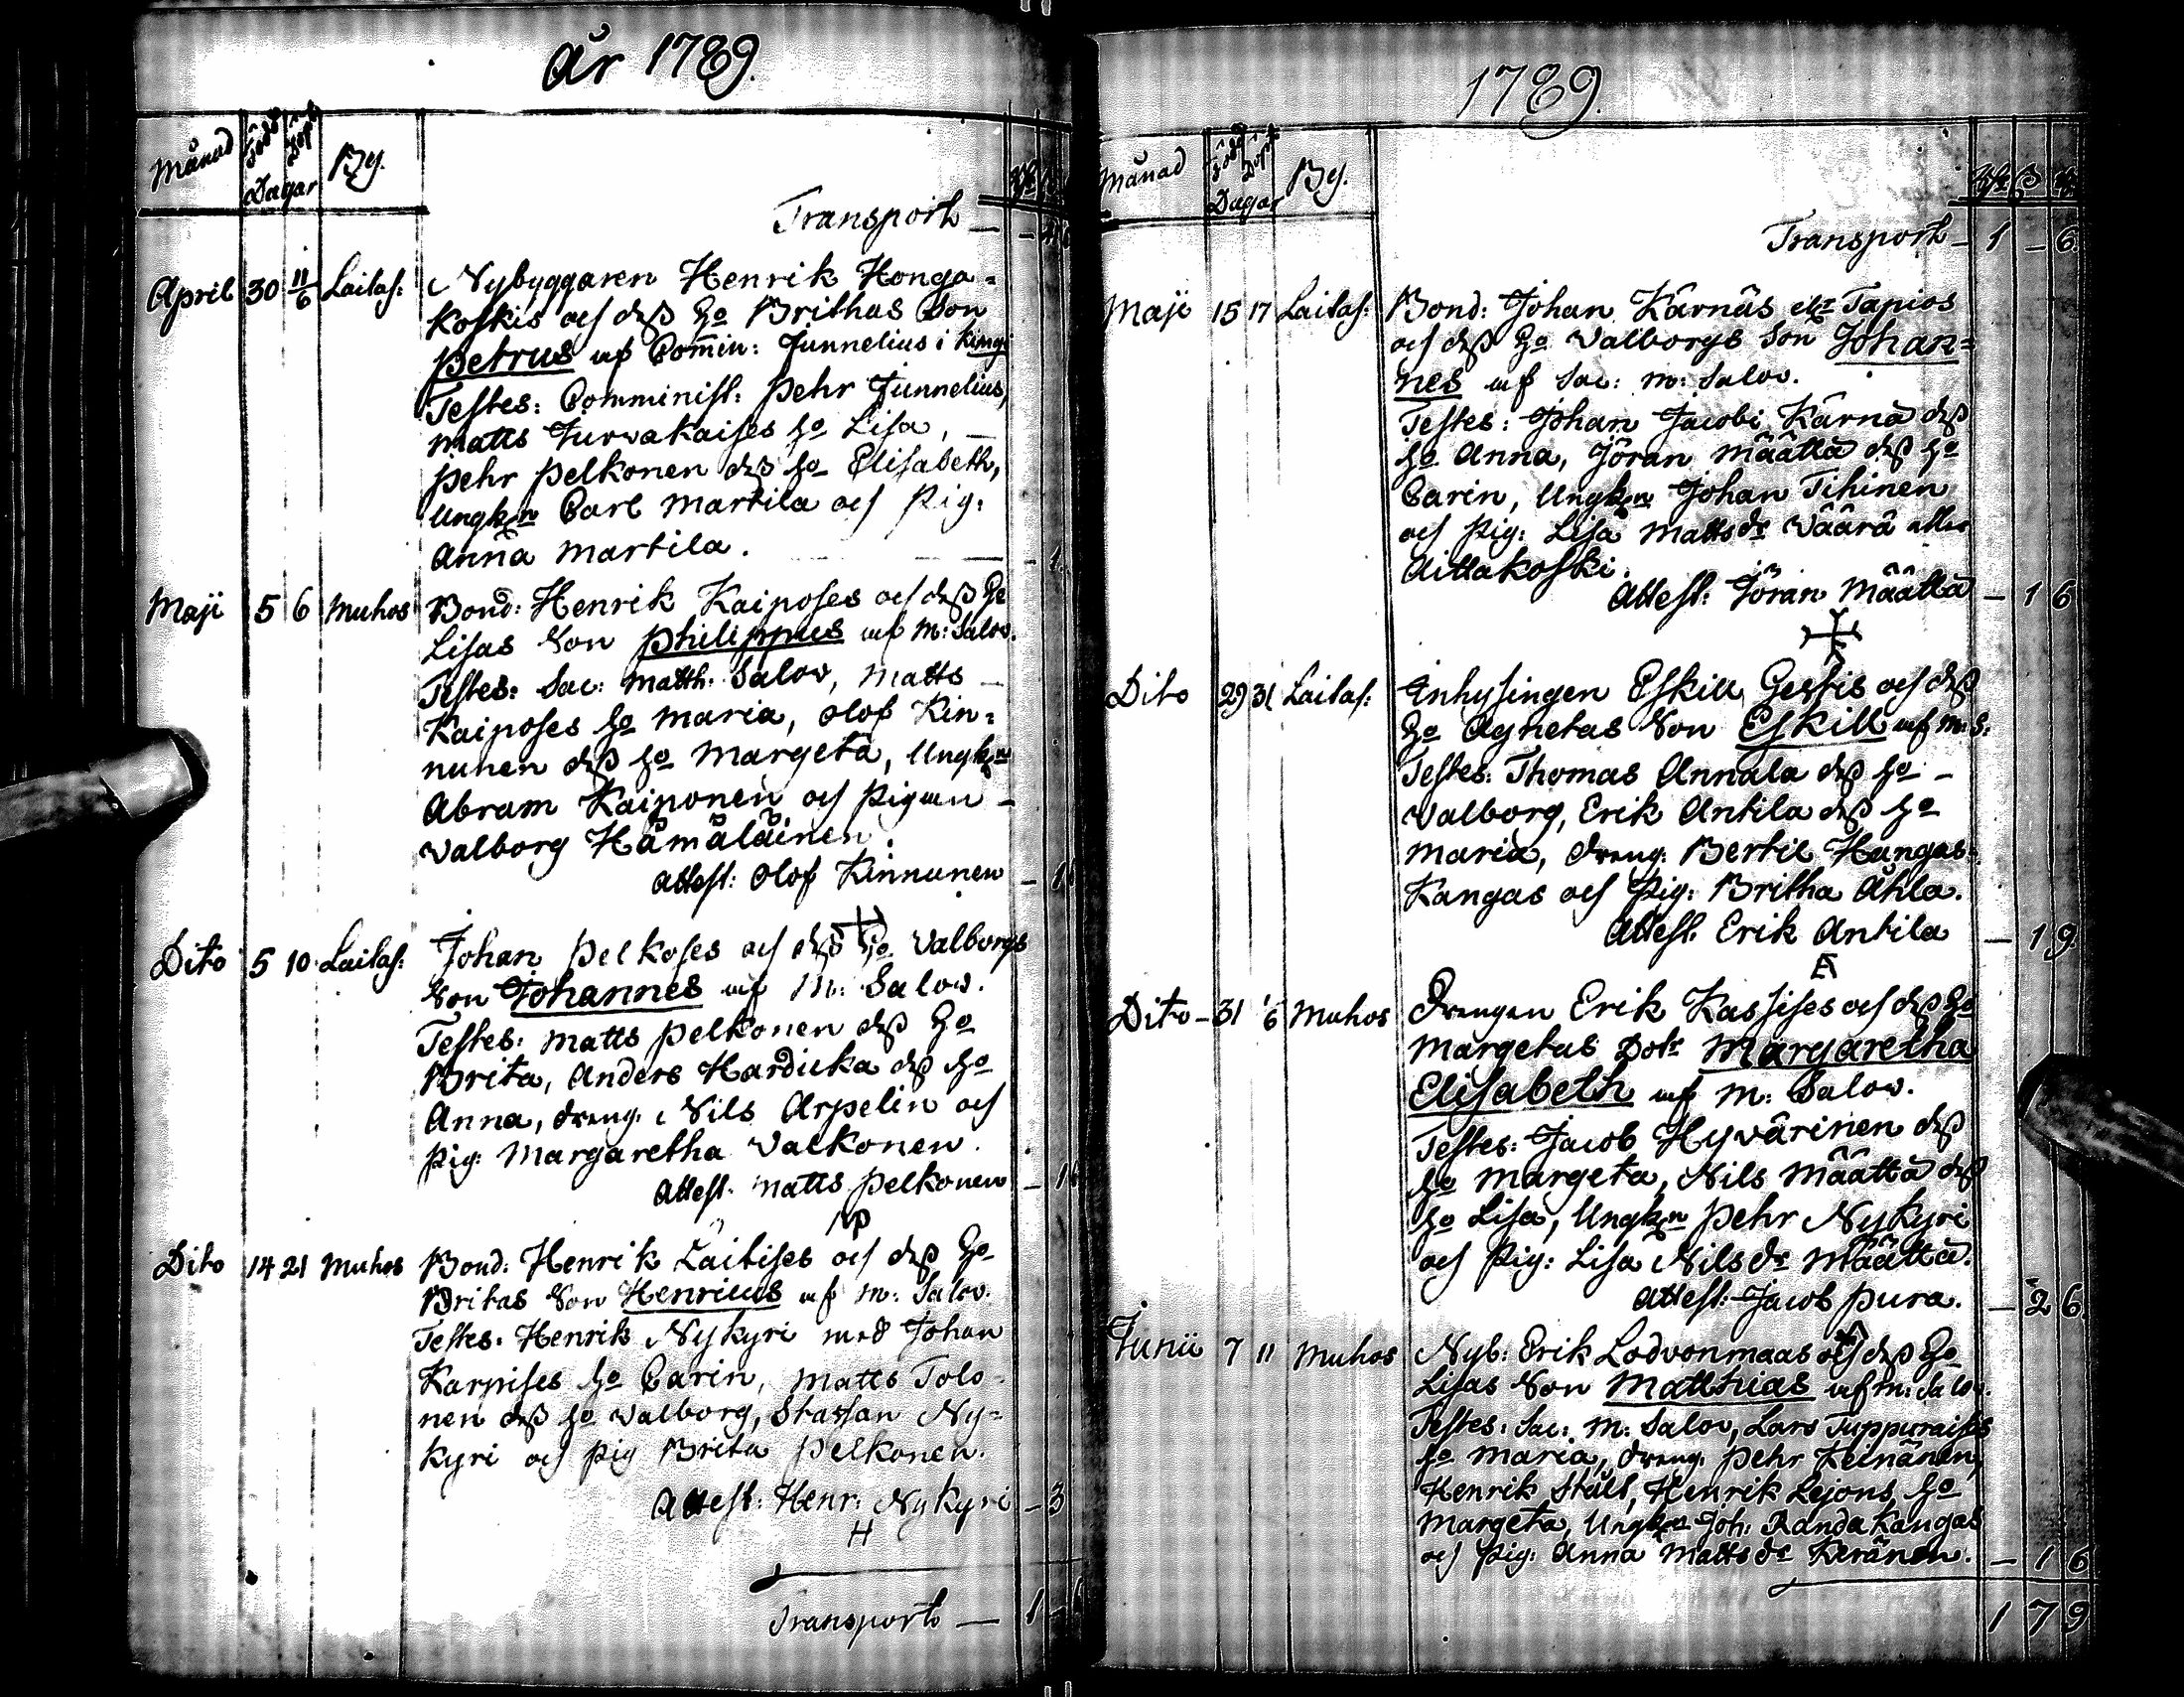 År 1789.
Månad Född Döpt Dagar By.
Transport —
April 30 11/6 Laitas: Nybyggaren Henrik Honga=
koskis och dess Ho Brithas Son
Petrus af Commin: Junnelius i Kingi
Testes: Comminist: Pehr Junnelius,
Matts Turvakaises ho Lisa, —
Pehr Pelkonen dess ho Elisabeth,
Ungkn Carl Martila och Pig:
Anna Martila. — 1
Maji 5 6 Muhos Bond: Henrik Kaiposes och dess Ho
Lisas Son Philippus af M: Salov.
Testes: Sac: Matth: Salov, Matts —
Kaiposes ho Maria, Olof Kin=
nunen dess ho Margeta, Ungkn
Abram Kaiponen och Pigan —
Valborg Hämäläinen.
Attest: Olof Kinnunen — 1
Dito 5 10 Laitas: Johan Pelkoses och dess Ho Valborgs
Son Johannes af M: Salov.
Testes: Matts Pelkonen dess Ho
Brita, Anders Hardicka dess Ho
Anna, dreng: Nils Arpelin och
Pig: Margaretha Valkonen.
Attest: Matts Pelkonen — 1 6
Dito 14 21 Muhos Bond: Henrik Laitises och dess Ho
Britas Son Henricus af M: Salov.
Testes: Henrik Nykyri med Johan
Karpises ho Carin, Matts Tolo-
nen dess ho Valborg, Staffan Ny=
kyri och Pig Brita Pelkonen.
Attest: Henr: Nykyri — 3
H
Transport — 1 –
1789.
Månad Född Döpt Dagar By.
Transport — 1 — 6
Maji 15 17 Laitas: Bond: Johan Kärnäs elr Tapios
och dess Ho Valborgs Son Johan=
nes af Sac: M: Salov.
Testes: Johan Jacobi Kärnä dess
ho Anna, Jöran Määttä dess ho
Carin, Ungkn Johan Tihinen
och Pig: Lisa Mattsdr Väärä eller
Aittakoski.
Attest: Jöran Määttä — 1 6
Dito 29 31 Laitas: Inhysingen Eskill Gertis och dess
Ho Agnetas Son Eskill af M: S:
Testes: Thomas Annala dess ho —
Valborg, Erik Antila dess ho
Maria, dreng: Bertil Hangas=
Kangas och Pig: Britha Ahla.
Attest. Erik Antila — 1 9
Dito — 31 6 Muhos Drengen Erik Kassises och dess Ho
Margetas Dotr Margaretha
Elisabeth af M: Salov.
Testes: Jacob Hyvärinen dess
ho Margeta, Nils Määttä dess
ho Lisa, Ungkn Pehr Nykyri
och Pig: Lisa Nilsdr Määttä.
Attest: Jacob Pura. — 2 6
Junii 7 11 Muhos Nyb: Erik Lodvonmaas och dess Ho
Lisas Son Matthias af M: Salov.
Testes: Sac: M: Salov, Lars Tuppuraises
ho Maria, dreng: Pehr Keinänen,
Henrik Stålt, Henrik Lejons ho
Margeta, Ungkn Joh: Randakangas
och Pig: Anna Mattsdr Keränen. — 1 6
1 7 9